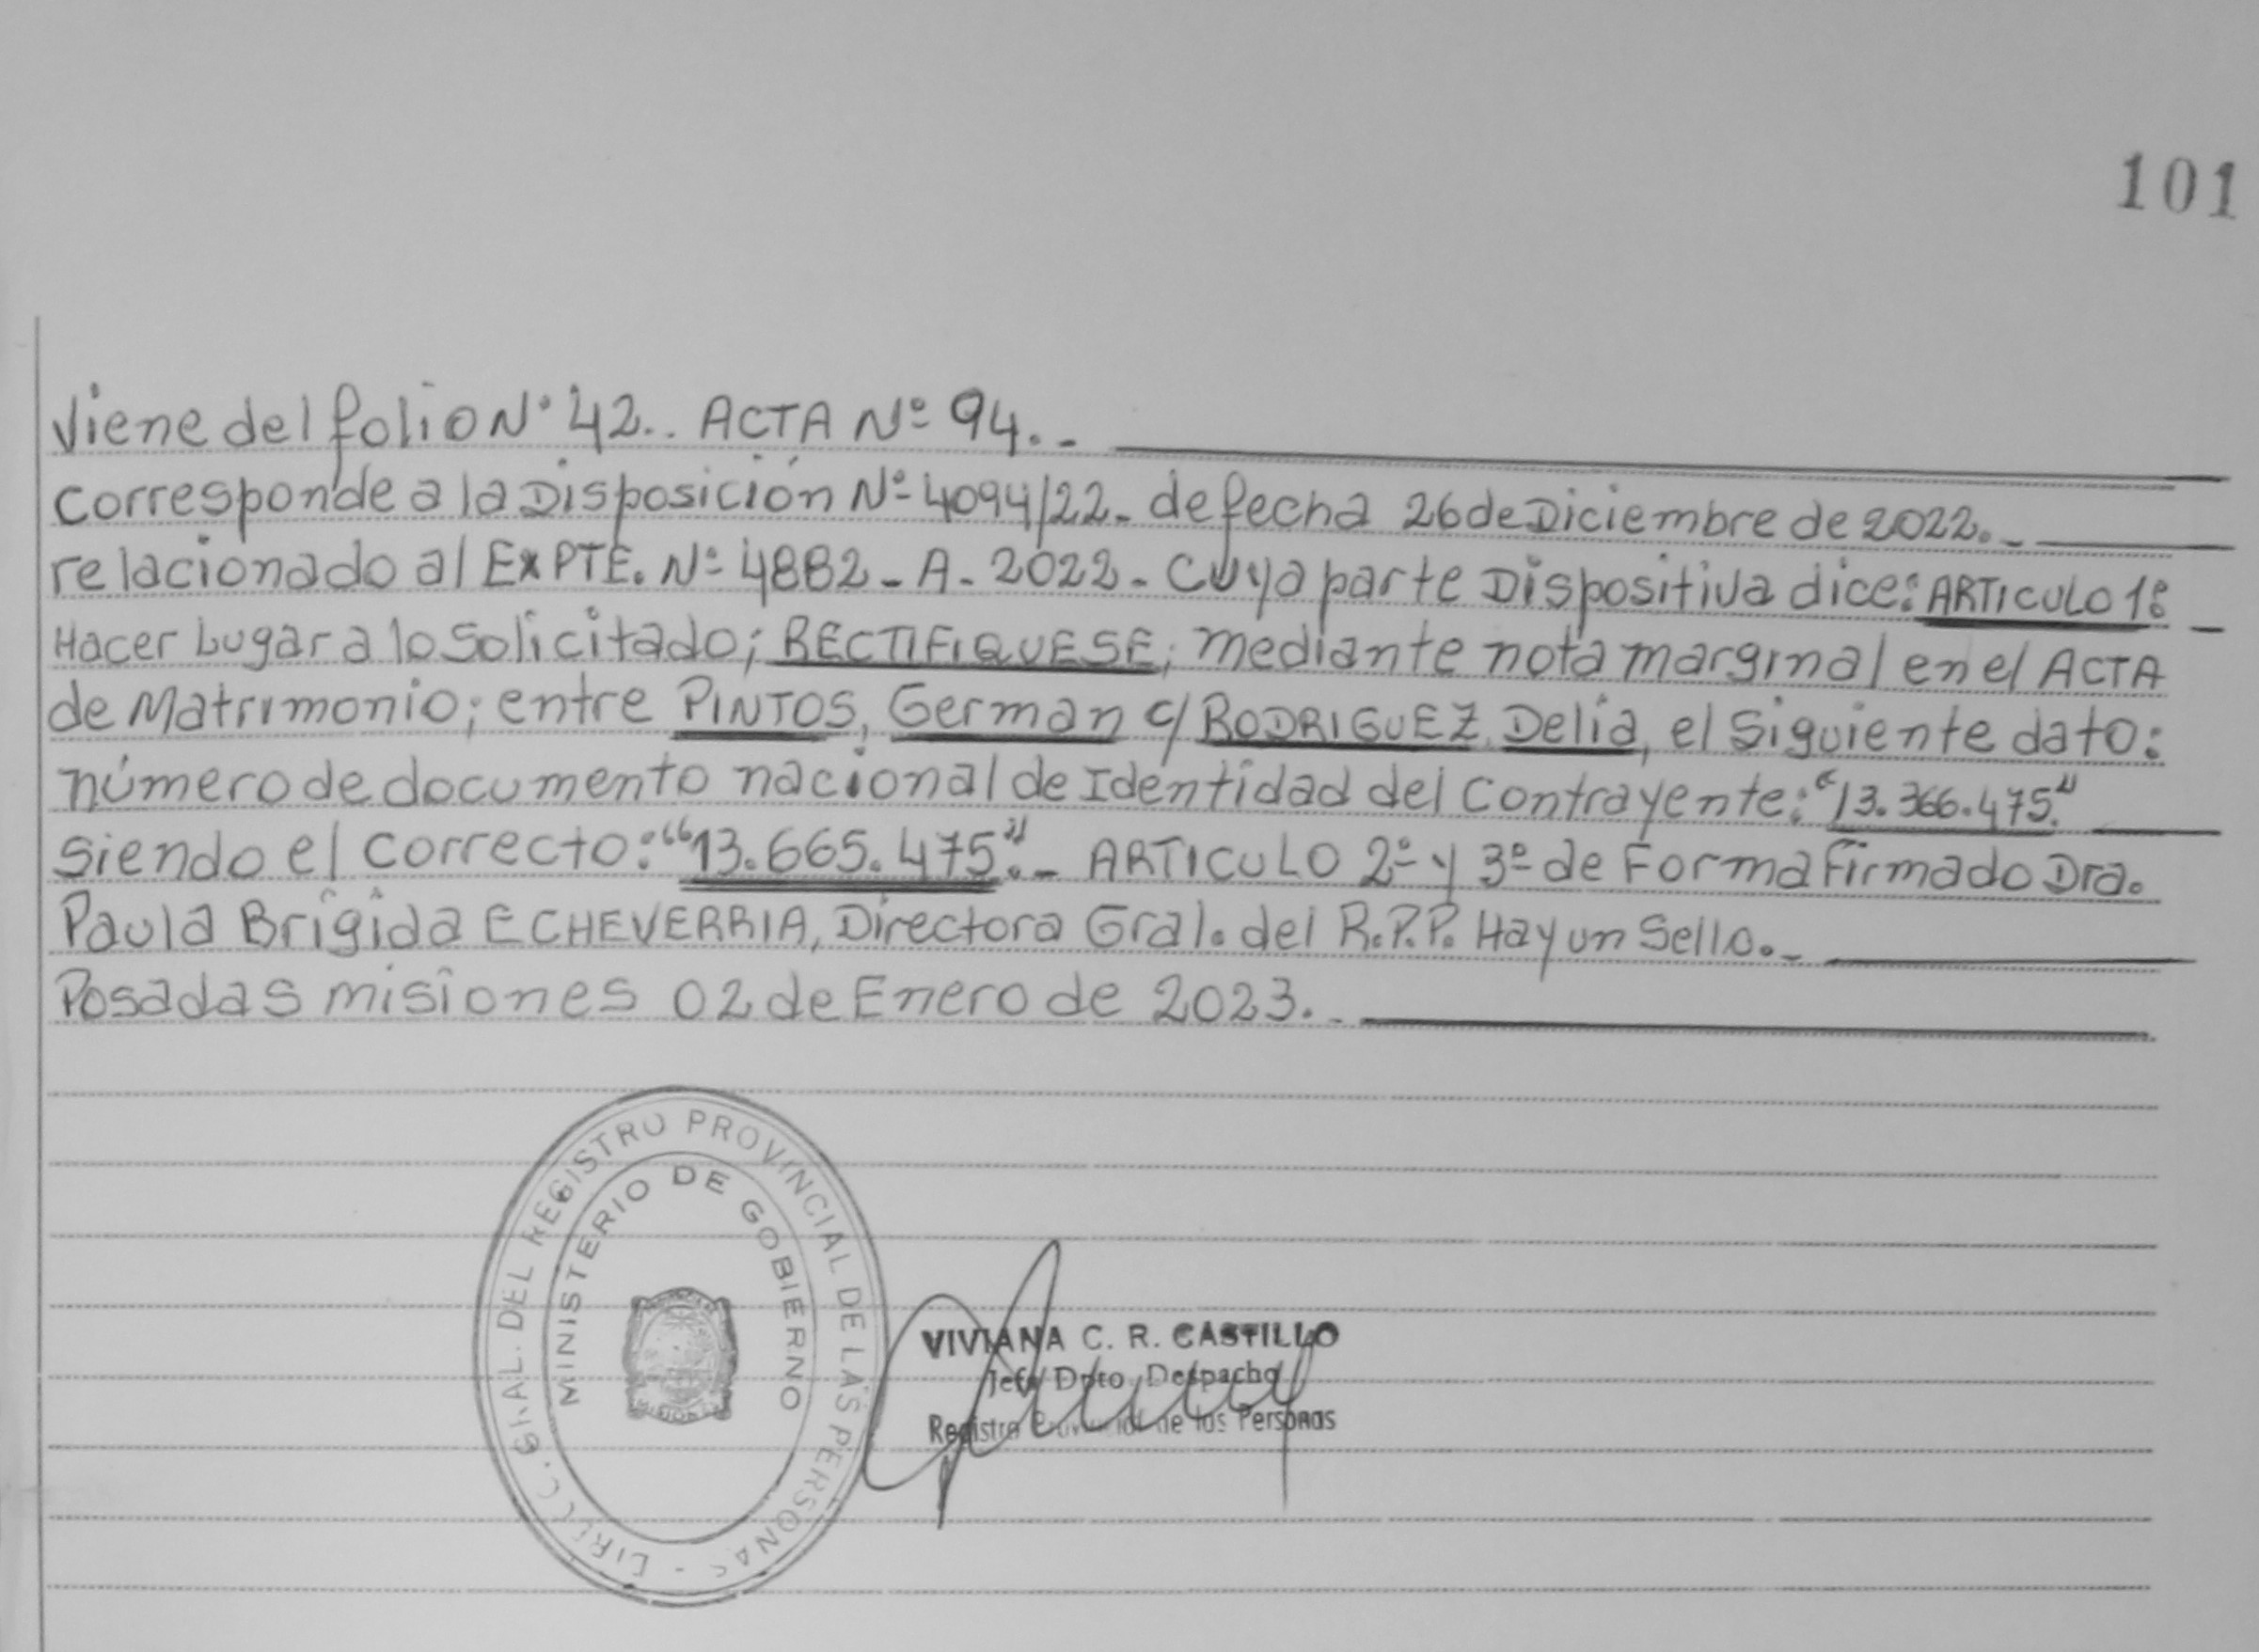 101
Viene del folio N° 42.. ACTA Nº 94..
Corresponde a la Disposición Nº 4094/22. de fecha 26 de Diciembre de 2022..
relacionado al EXPTE. Nº 4882 - A - 2022 - Cuya parte Dispositiva dice: ARTICULO 1º
Hacer Lugar a lo Solicitado; RECTIFIQUESE; mediante nota marginal en el ACTA
de Matrimonio; entre PINTOS, German c/ RODRIGUEZ Delia, el Siguiente dato:
número de documento nacional de Identidad del Contrayente: "13.366.475."
siendo el correcto: "13.665.475".- ARTICULO 2º y 3º de Forma Firmado Dra.
Paula Brigida ECHEVERRIA, Directora Gral. del R.P.P. Hay un Sello.-
Posadas misiones 02 de Enero de 2023.
DIRECC. GRAL. DEL REGISTRO PROVINCIAL DE LAS PERSONAS -
MINISTERIO DE GOBIERNO
MISIONES
VIVIANA C. R. CASTILLO
Jefe Dpto. Despacho
Registro Provincial de las Personas